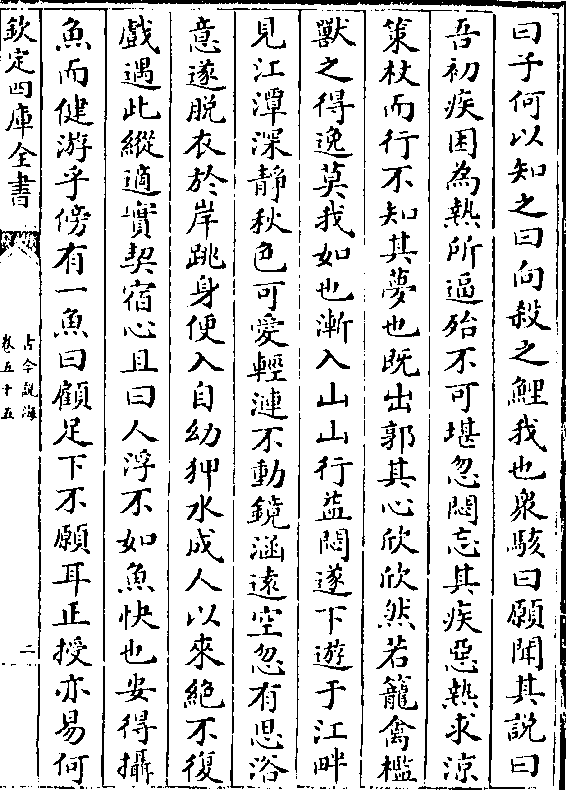 曰子何以知之曰向殺之鯉我也衆駭曰願聞其說曰
吾初疾困為熱所逼殆不可堪忽悶忘其疾惡熱求涼
策杖而行不知其夢也既出郭其心欣欣然若籠禽檻
獸之得逸莫我如也漸入山山行益悶遂下遊于江畔
見江潭深靜秋色可愛輕漣不動鏡涵遠空忽有思浴
意遂脫衣於岸跳身便入自幼狎水成人以來絕不復
戲遇此縱適實契宿心且曰人浮不如魚快也安得攝
魚而健游乎傍有一魚曰顧足下不願耳正授亦易何
欽定四庫全書
古今說海
卷五十五
二